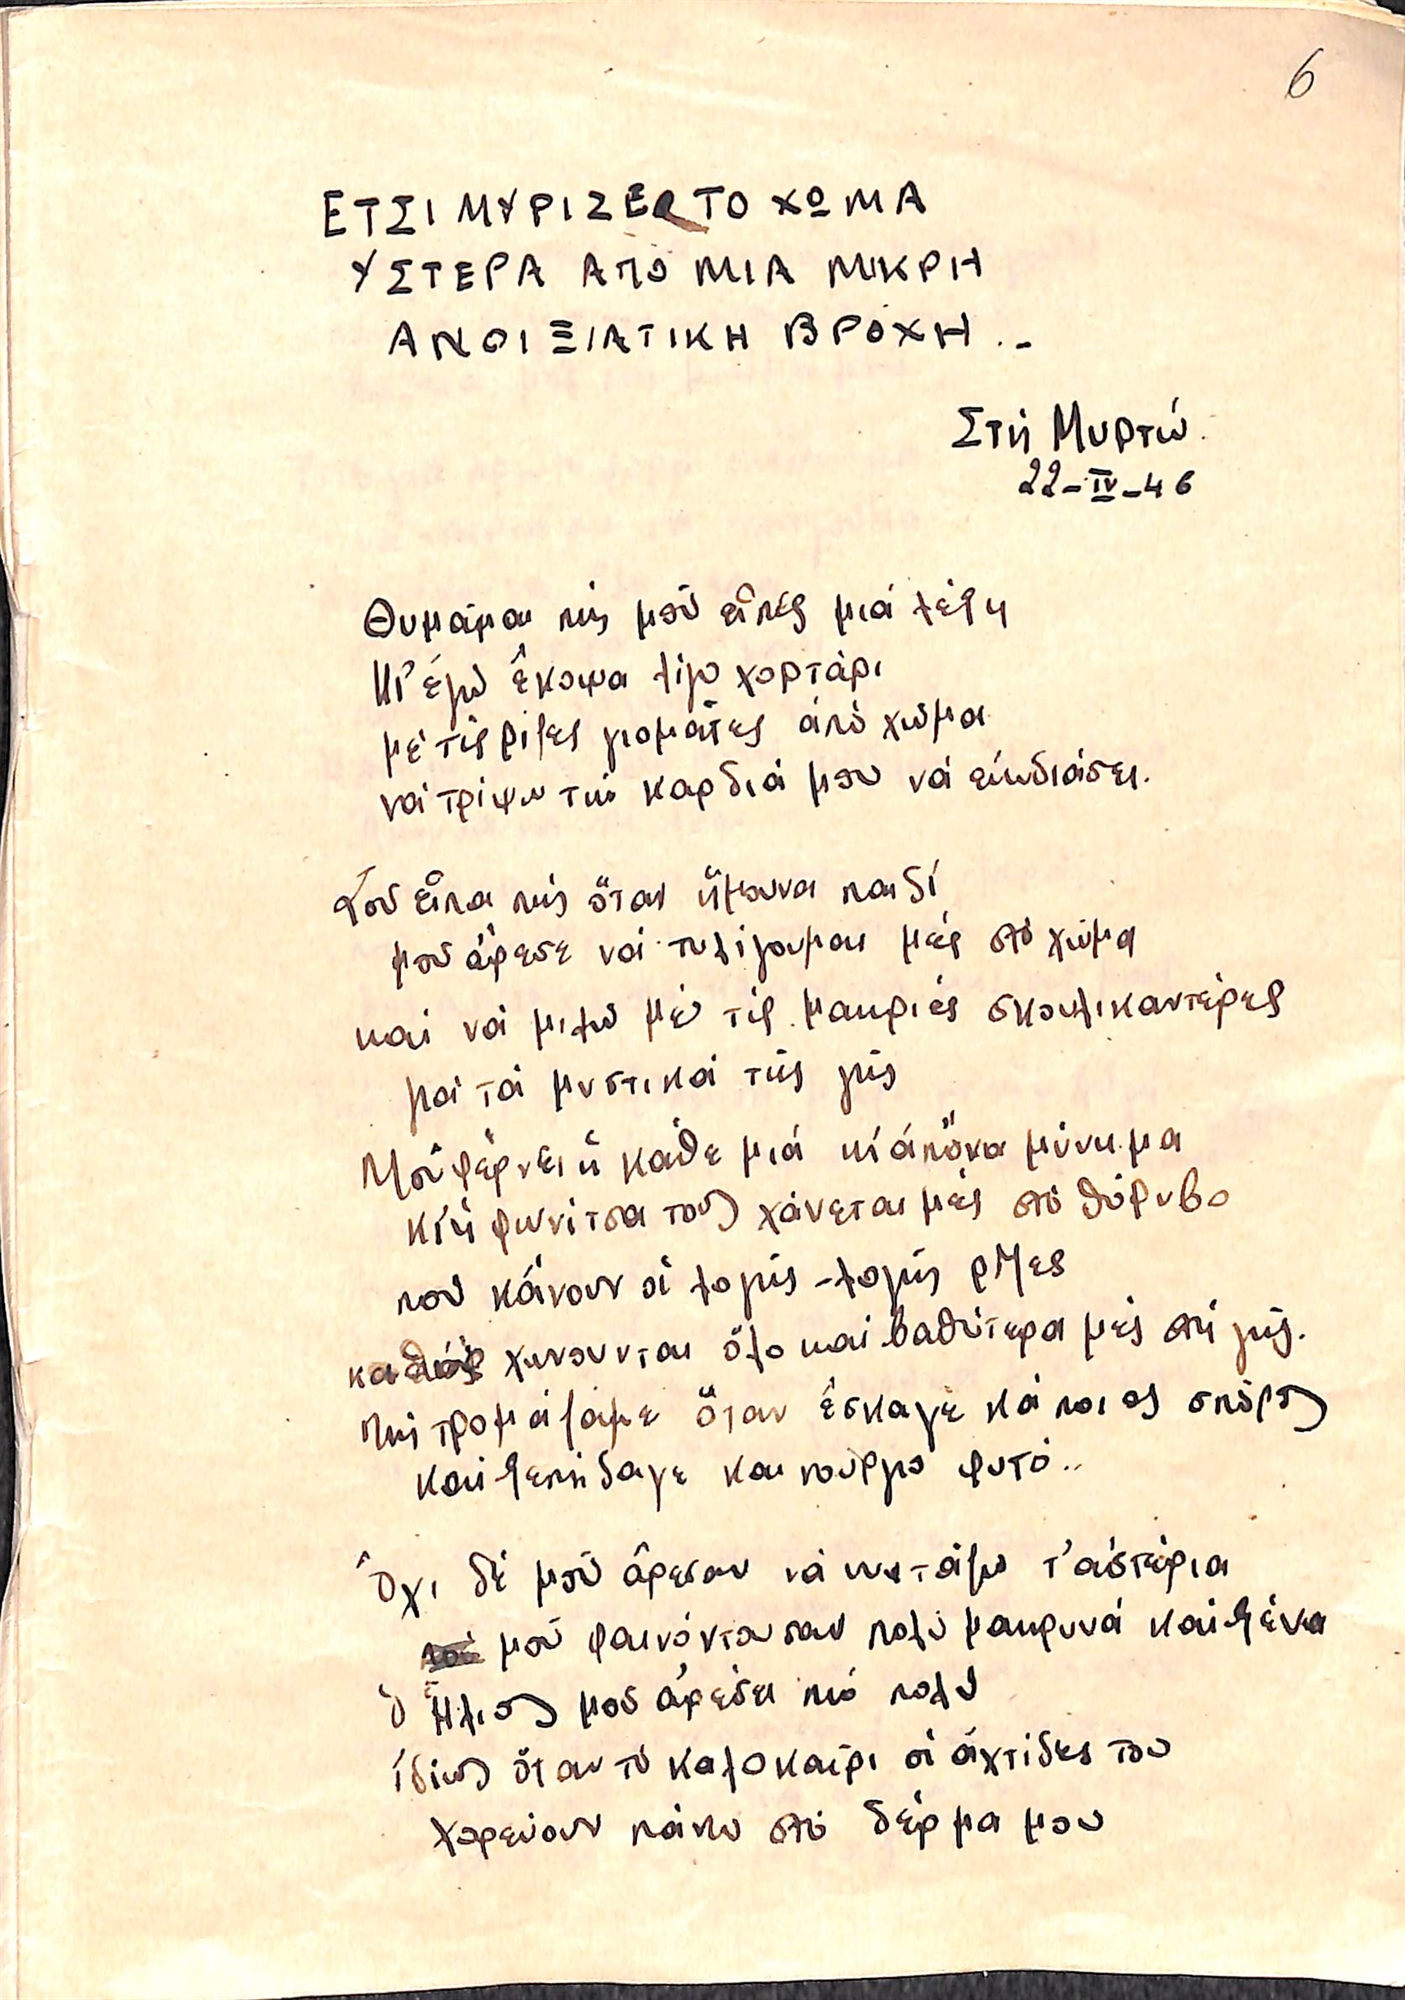 6
ΕΤΣΙ ΜΥΡΙΖΕ ΤΟ ΧΩΜΑ
ΥΣΤΕΡΑ ΑΠΟ ΜΙΑ ΜΙΚΡΗ
ΑΝΟΙΞΙΑΤΙΚΗ ΒΡΟΧΗ . -
Στή Μυρτώ.
22-IV-46
Θυμᾶμαι πώς μοῦ εἶπες μιά λέξη
Κι' ἐγώ ἔκοψα λίγο χορτάρι
μέ τίς ρίζες γιομᾶτες ἀπό χῶμα
νά τρίψω τήν καρδιά μου νά εὐωδιάσει.
Σοῦ εἶπα πώς ὅταν ἤμουνα παιδί
μοῦ ἄρεσε νά τυλίγουμαι μές στό χῶμα
καί νά μιλῶ μέ τίς μακριές σκουλικαντέρες
γιά τά μυστικά τῆς γῆς
Μοὔφερνε ἡ κάθε μιά κι' ἀπὄνα μήνυμα
κι' ἡ φωνίτσα τους χάνεται μές στό θόρυβο
πού κάνουν οἱ λογῆς-λογῆς ρίζες
καθώς χώνουνται ὅλο καί βαθύτερα μές στή γῆς.
Πώς τρομάζαμε ὅταν ἔσκαγε κάποιος σπόρος
καί ξεπήδαγε καινούργιο φυτό..
Ὄχι δέ μοῦ ἄρεσαν νά κυττάζω τ' ἀστέρια
μοῦ φαινόντουσαν πολύ μακρυνά καί ξένα
ὁ ἥλιος μοῦ ἀρέσει πιό πολύ
ἰδίως ὅταν τό καλοκαῖρι οἱ ἀχτίδες του
χορεύουν πάνω στό δέρμα μου